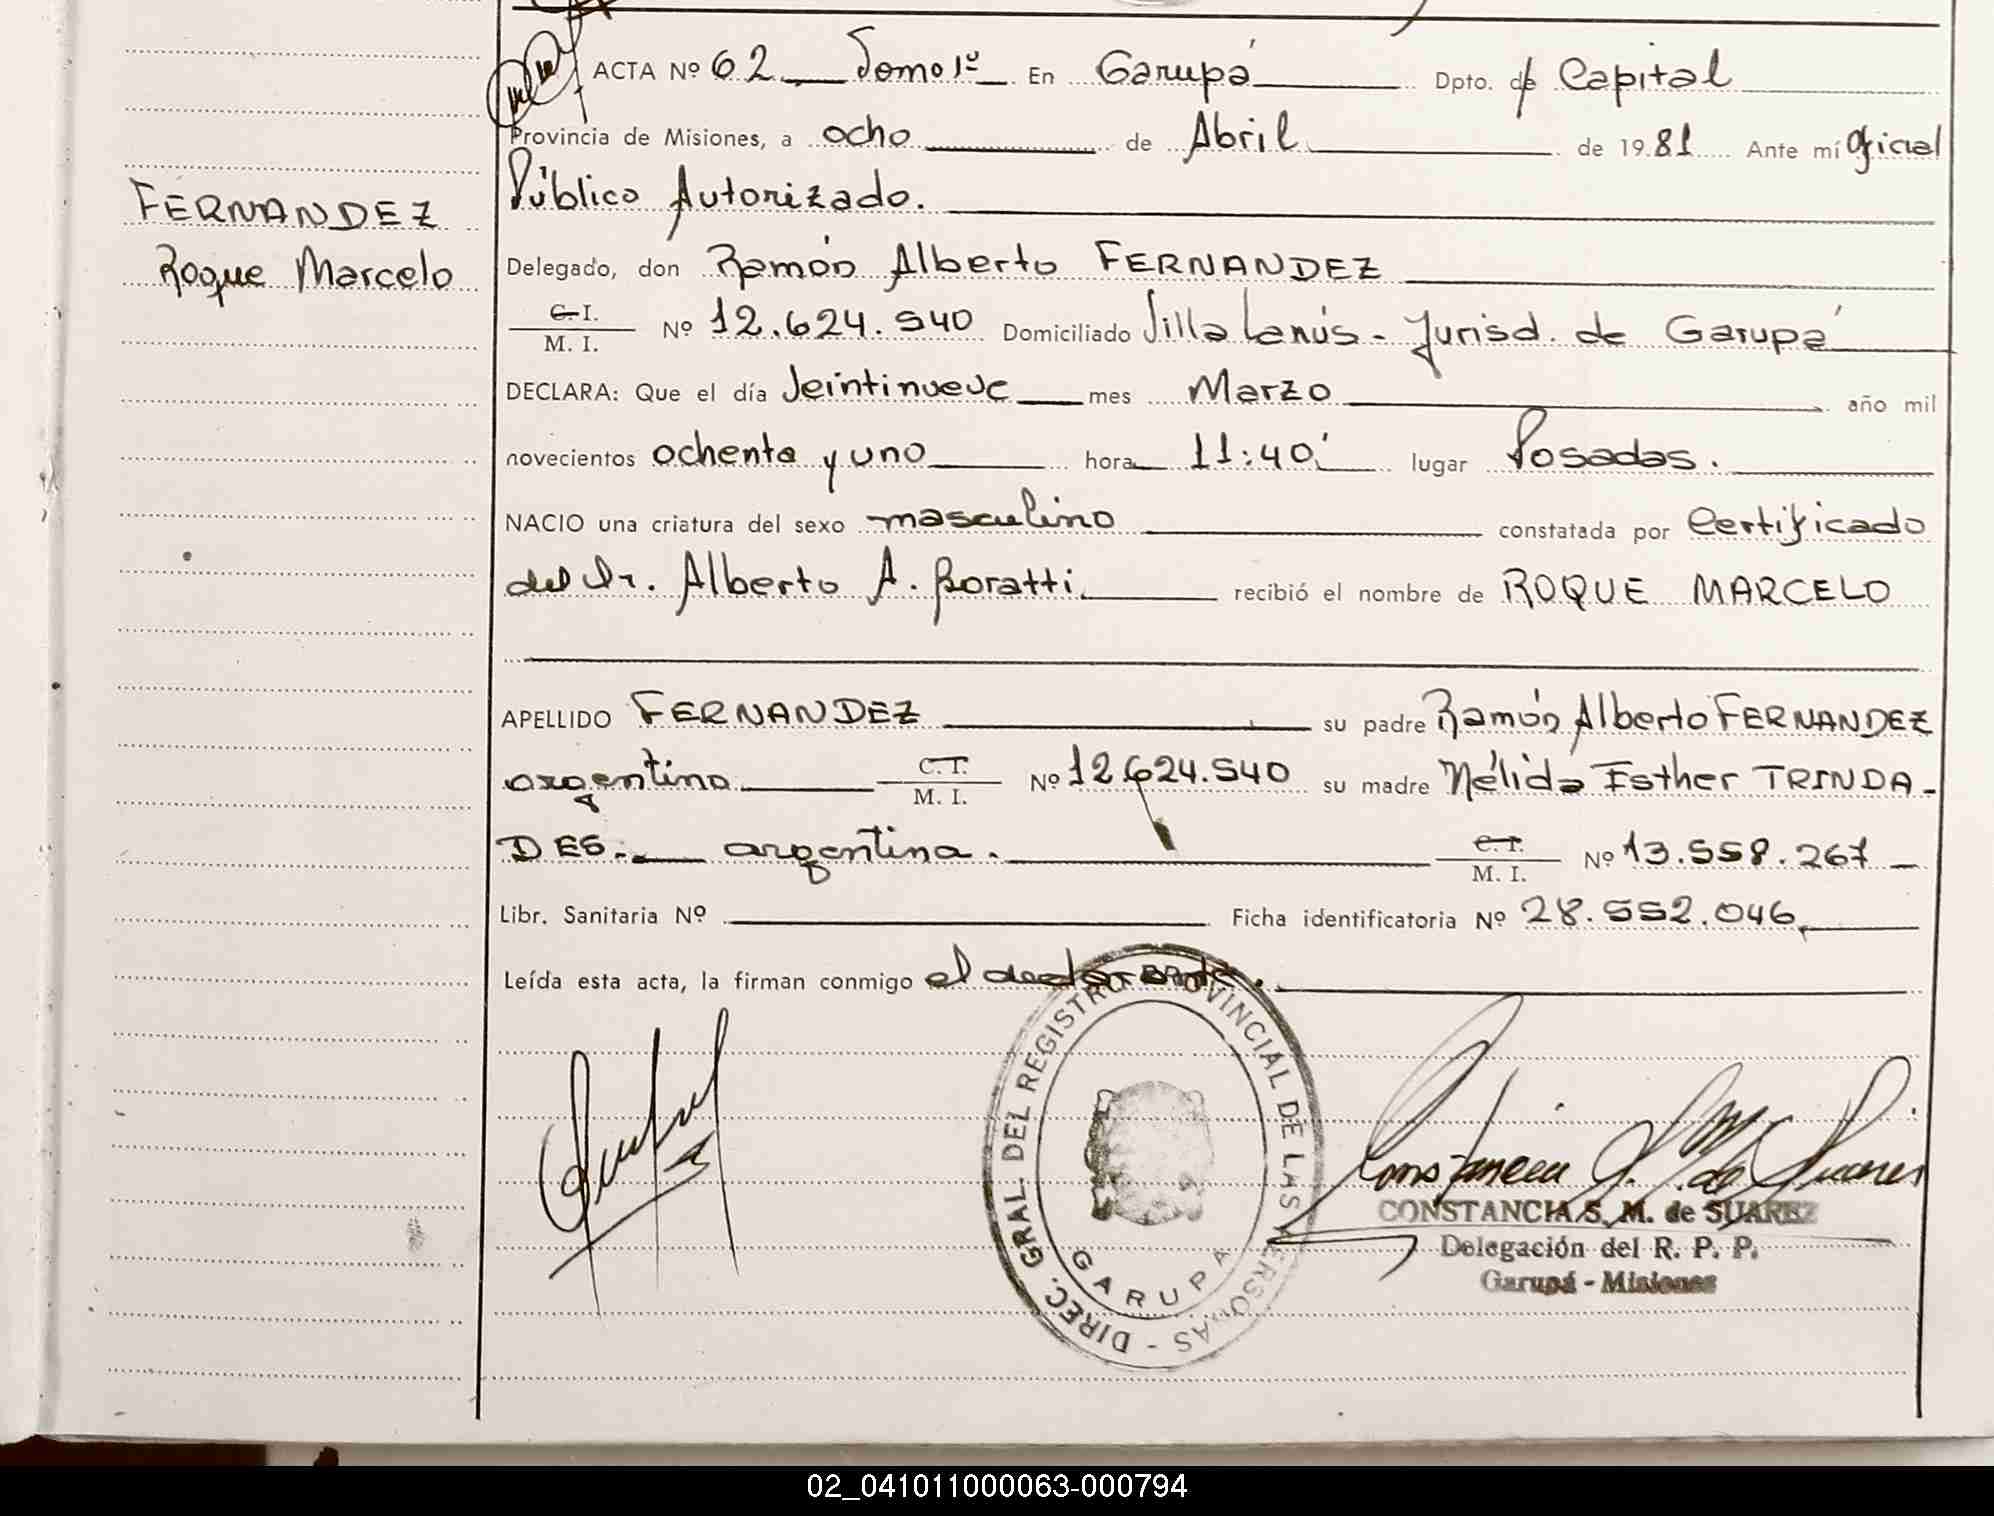 FERNANDEZ
Roque Marcelo
ACTA Nº 62 Tomo 1º En Garupá Dpto. de Capital
Provincia de Misiones, a ocho de Abril de 1981 Ante mí Oficial
Público Autorizado.
Delegado, don Ramón Alberto FERNANDEZ
C.I.
M. I. Nº 12.624.540 Domiciliado Villa Lanús - Jurisd. de Garupá
DECLARA: Que el día Veintinueve mes Marzo año mil
novecientos ochenta y uno hora 11:40' lugar Posadas.
NACIO una criatura del sexo masculino constatada por Certificado
del Dr. Alberto A. Boratti recibió el nombre de ROQUE MARCELO
APELLIDO FERNANDEZ su padre Ramón Alberto FERNANDEZ
argentino C.I.
M. I. Nº 12.624.540 su madre Nélida Esther TRINDA-
DES. argentina. C.I.
M. I. Nº 13.558.267
Libr. Sanitaria Nº Ficha identificatoria Nº 28.552.046
Leída esta acta, la firman conmigo el declarante.
DIREC. GRAL. DEL REGISTRO PROVINCIAL DE LAS PERSONAS -
GARUPA
Constancia S. M. de Suarez
CONSTANCIA S. M. de SUAREZ
Delegación del R. P. P.
Garupá - Misiones
02_041011000063-000794